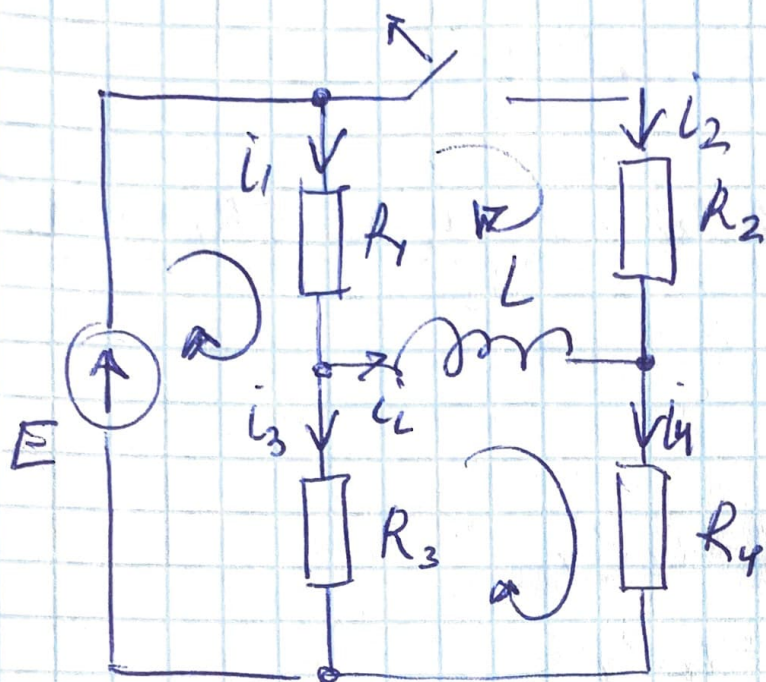 i₂
i₁
R₁
R₂
L
i₃
i_L
i₄
E
R₃
R₄